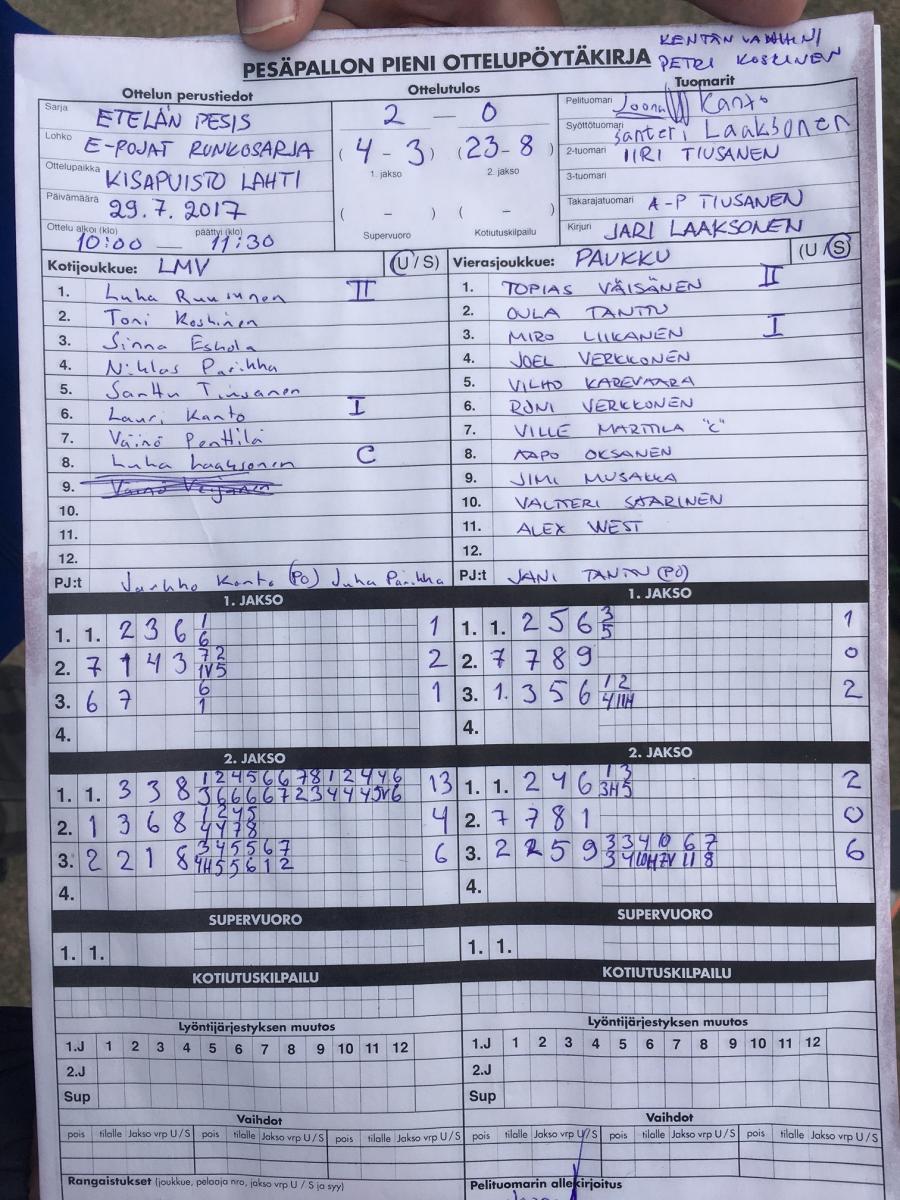 KENTÄN VANHIN/
PETRI KOSKINEN
PESÄPALLON PIENI OTTELUPÖYTÄKIRJA
Ottelun perustiedot Ottelutulos Tuomarit
Sarja ETELÄN PESIS
Lohko E-POJAT RUNKOSARJA
Ottelupaikka KISAPUISTO LAHTI
Päivämäärä 29.7. 2017
Ottelu alkoi (klo) päättyi (klo)
10:00 — 11:30
2 — 0
(4 - 3) (23-8)
1. jakso 2. jakso
( - ) ( - )
Supervuoro Kotiutuskilpailu
Pelituomari Joona Kanto
Syöttötuomari Santeri Laaksonen
2-tuomari IIRI TIUSANEN
3-tuomari
Takarajatuomari A-P TIUSANEN
Kirjuri JARI LAAKSONEN
Kotijoukkue: LMV (U/S)
1. Luha Ruusunen II
2. Toni Koskinen
3. Sinna Eskola
4. Niklas Parikka
5. Santtu Tiusanen
6. Lauri Kanto I
7. Väinö Penttilä
8. Luha Laaksonen C
9.
10.
11.
12.
PJ:t Jarkko Kanto (PO) Juha Parikka
Vierasjoukkue: PAUKKU (U/S)
1. TOPIAS VÄISÄNEN II
2. OULA TANTTU
3. MIRO LIIKANEN I
4. JOEL VERKKONEN
5. VILHO KAREVAARA
6. RONI VERKKONEN
7. VILLE MARTTILA "C"
8. AAPO OKSANEN
9. JIMI MUSAKKA
10. VALTTERI SAARINEN
11. ALEX WEST
12.
PJ:t JANI TANTTU (PO)
1. JAKSO
1. 1. 2 3 6 1 1
6
2. 7 1 4 3 7 2 2
1V 5
3. 6 7 6 1
1
4.
1. JAKSO
1. 1. 2 5 6 3 1
5
2. 7 7 8 9 0
3. 1. 3 5 6 1 2 2
4 11H
4.
2. JAKSO
1. 1. 3 3 8 1 2 4 5 6 6 7 8 1 2 4 4 6 13
3 6 6 6 6 7 2 3 4 4 4 5V 6
2. 1 3 6 8 1 2 4 5 4
4 4 7 8
3. 2 2 1 8 3 4 5 5 6 7 6
4H 5 5 6 1 2
4.
2. JAKSO
1. 1. 2 4 6 1 3 2
3H 5
2. 7 7 8 1 0
3. 2 2 5 9 3 3 4 10 6 7 6
3 4 10H 7V 11 8
4.
SUPERVUORO SUPERVUORO
1. 1. 1. 1.
KOTIUTUSKILPAILU KOTIUTUSKILPAILU
Lyöntijärjestyksen muutos Lyöntijärjestyksen muutos
1.J 1 2 3 4 5 6 7 8 9 10 11 12 1.J 1 2 3 4 5 6 7 8 9 10 11 12
2.J 2.J
Sup Sup
Vaihdot Vaihdot
pois tilalle Jakso vrp U/S pois tilalle Jakso vrp U/S pois tilalle Jakso vrp U/S pois tilalle Jakso vrp U/S pois tilalle Jakso vrp U/S pois tilalle Jakso vrp U/S
Rangaistukset (joukkue, pelaaja nro, jakso vrp U / S ja syy) Pelituomarin allekirjoitus